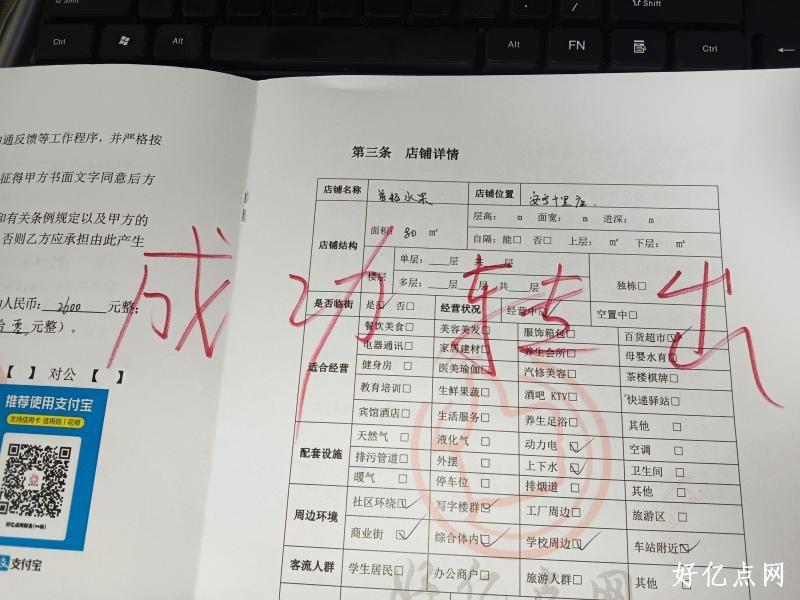 Shift
Shift
Ctrl
Alt
Alt
FN
Ctrl
通反馈等工作程序，并严格按
征得甲方书面文字同意后方
和有关条例规定以及甲方的
否则乙方应承担由此产生
人民币: 2600 元整;
元整）。
【 】 对公 【 】
推荐使用支付宝
支持信用卡 信用购 | 花呗
支付宝
成功转出
第三条 店铺详情
店铺名称 水果 店铺位置
店铺结构 面积: 80 ㎡ 层高: m 面宽: m 进深: m
自隔: 能□ 否□ 上层: ㎡ 下层: ㎡
楼层 单层: 层 共 层 独栋□
多层: 层 层 共 层
是否临街 是☑ 否□ 经营状况 经营中☑ 空置中□
适合经营 餐饮美食□ 美容美发□ 服饰箱包□ 百货超市☑
电器通讯□ 家居建材□ 养生会所□ 母婴水育□
健身房 □ 医美瑜伽□ 汽修美容□ 茶楼棋牌□
教育培训□ 生鲜果蔬□ 酒吧 KTV□ 快递驿站□
宾馆酒店□ 生活服务□ 养生足浴□ 其他 □
配套设施 天然气 □ 液化气 □ 动力电 ☑ 空调 □
排污管道□ 外摆 □ 上下水 ☑ 卫生间 □
暖气 □ 停车位 □ 排烟道 □ 其他 □
周边环境 社区环绕☑ 写字楼群☑ 工厂周边□ 旅游区 □
商业街 ☑ 综合体内☑ 学校周边☑ 车站附近☑
客流人群 学生居民□ 办公商户□ 旅游人群□ 其他 □
好亿点网
好亿点网